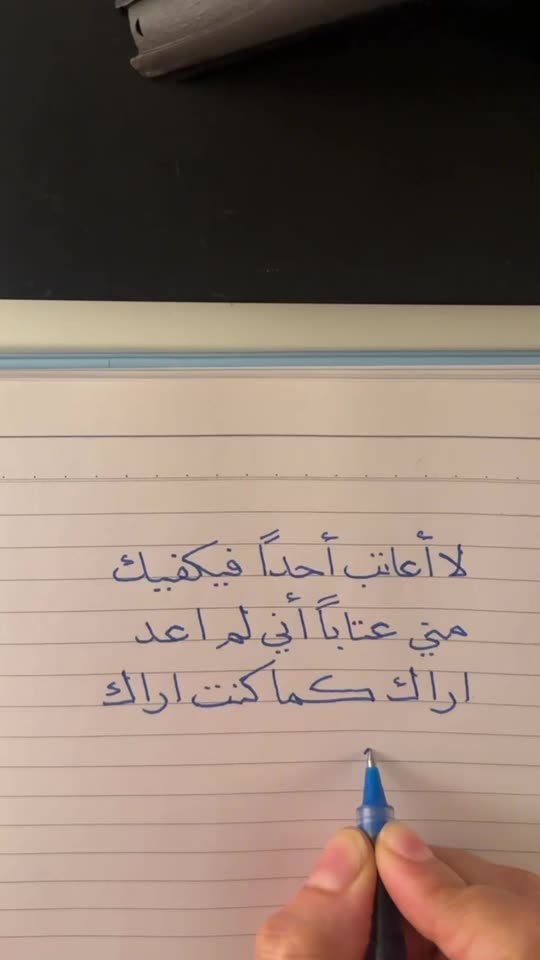 لا أعاتب أحداً فيكفيك
مني عتاباً أني لم اعد
اراك كما كنت اراك